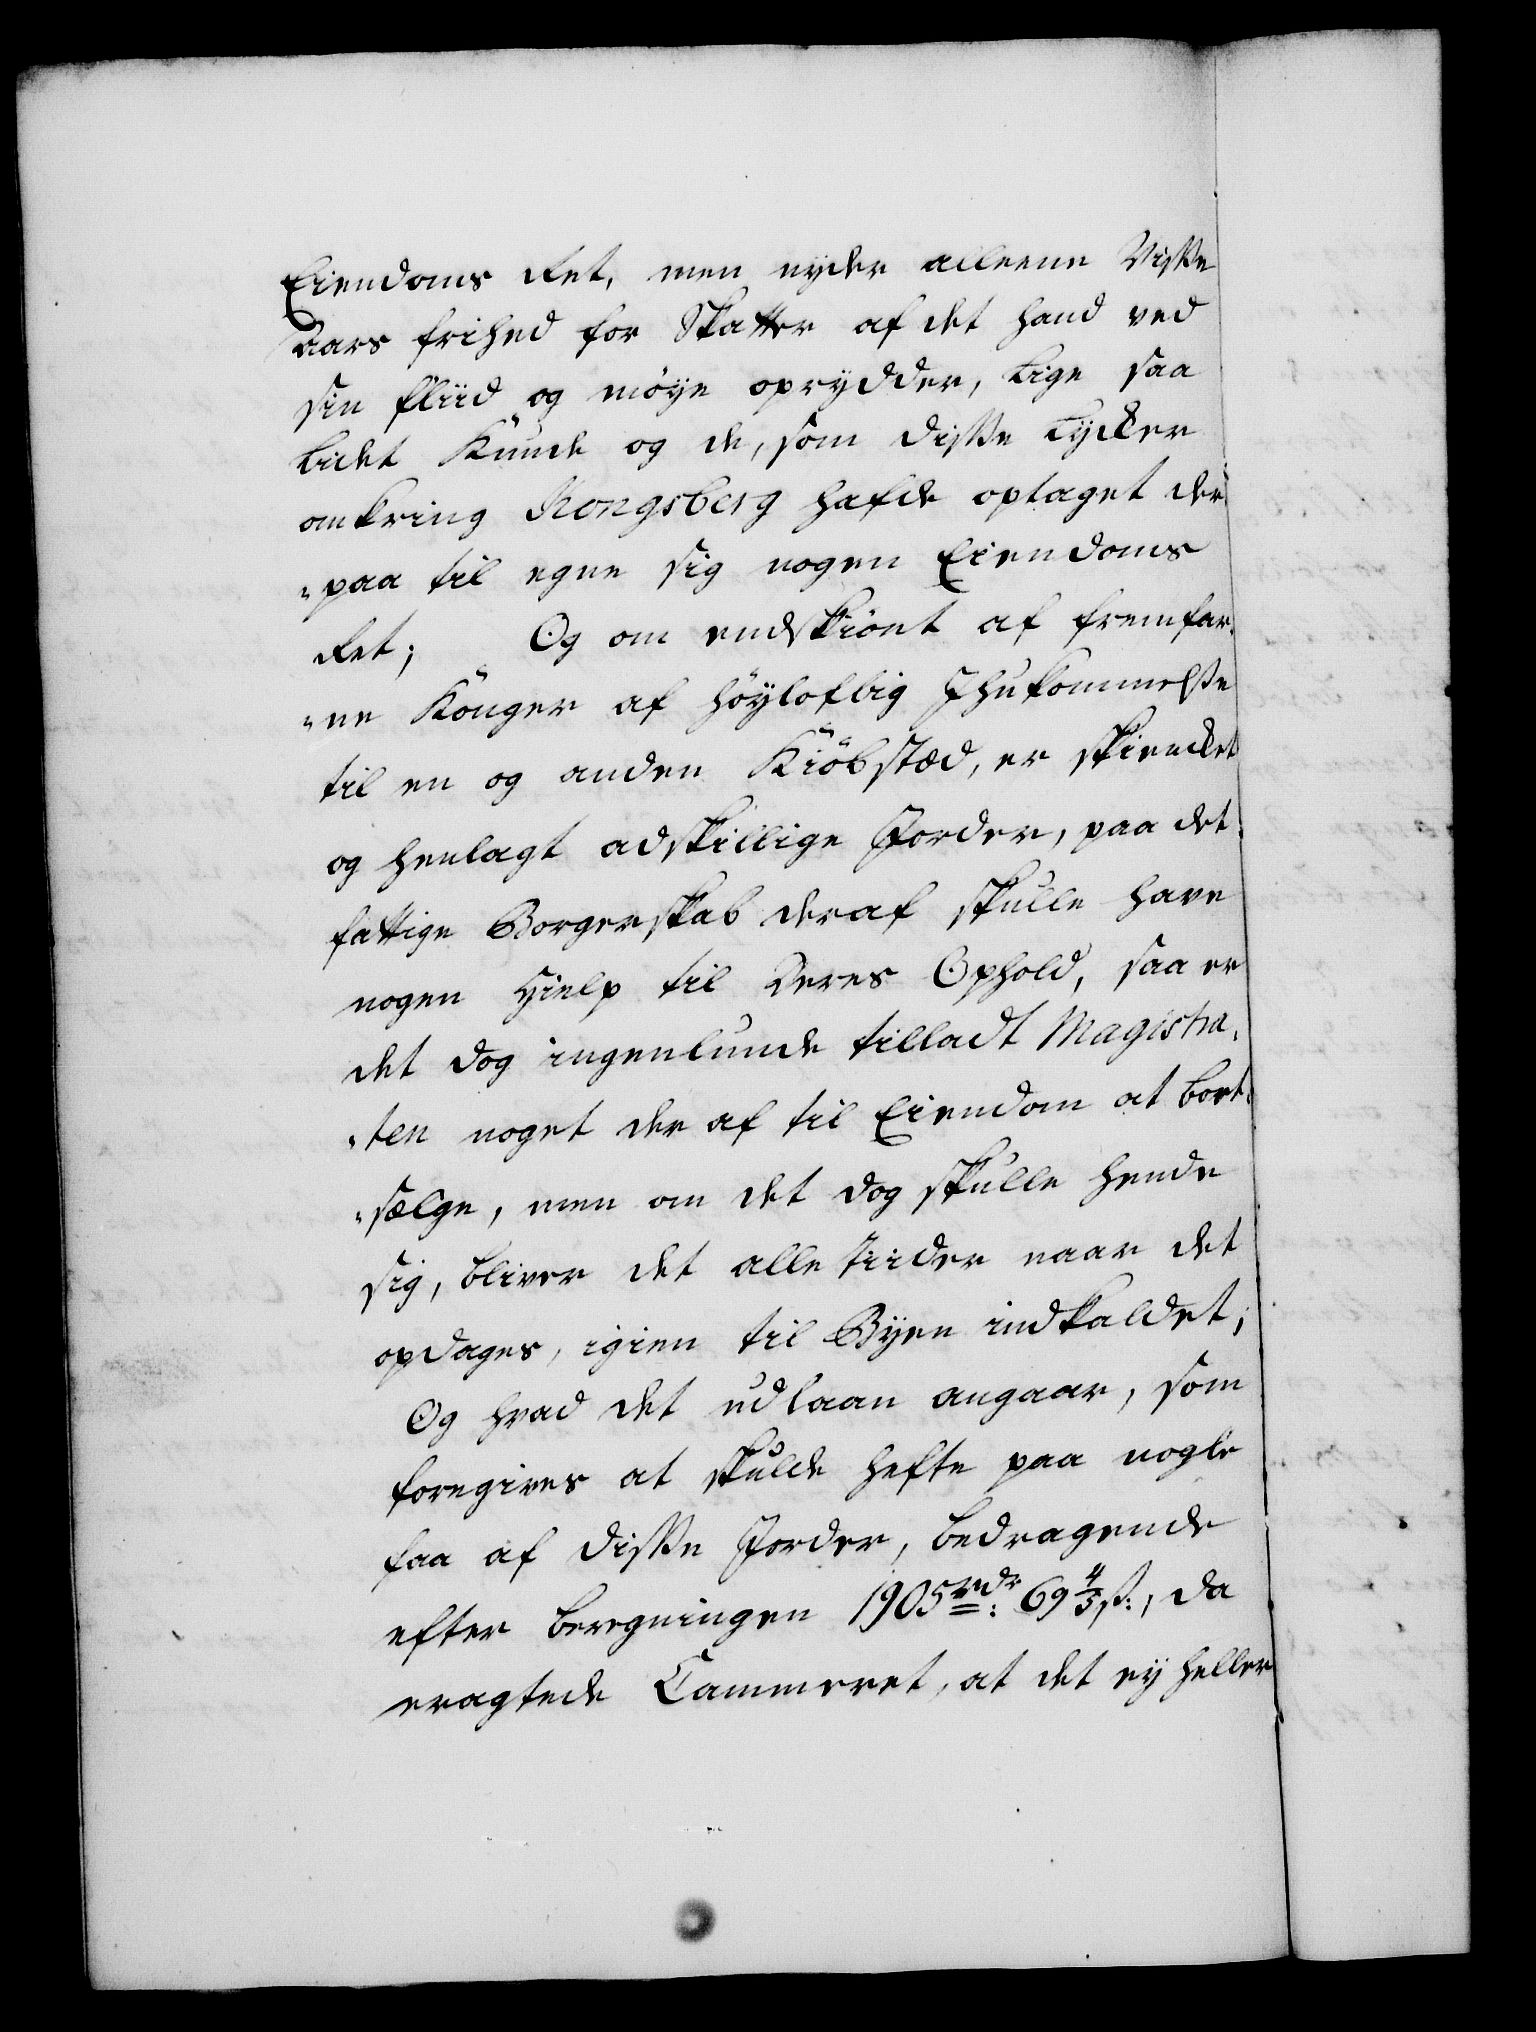 Eiendoms Ret, men nyder alleene Visse
Aars frihed for Skatter af det hand ved
sin fliid og möye oprydder, lige saa
lidet Kunde og de, som disse tycker
omkring Kongsberg hafde optaget der
"paa til egne sig nogen Eiendoms
Ret; Og om endskiönt af fremfar„
"ne Konger af höyloflig Ihukommelse
til en og anden Kiöbstæd, er skiencket
og henlagt adskillige Jorder, paa det
fattige Borgerskab deraf skulle have
nogen Hielp til Deres Ophold, saa er
det dog ingenlunde tilladt Magistra„
"ten noget der af til Eiendom at bort„
"sælge, men om det dog skulle hende
sig, bliver det alle Tiider naar det
opdages, igien til Byen indkaldet;
Og hvad det udlaan angaar, som
foregives at skulde hefte paa nogle
faa af disse Jorder, bedragende
efter beregningen 1905 rdr: 69 4/5 ß:, da
eragtede Cammeret, at det ey heller